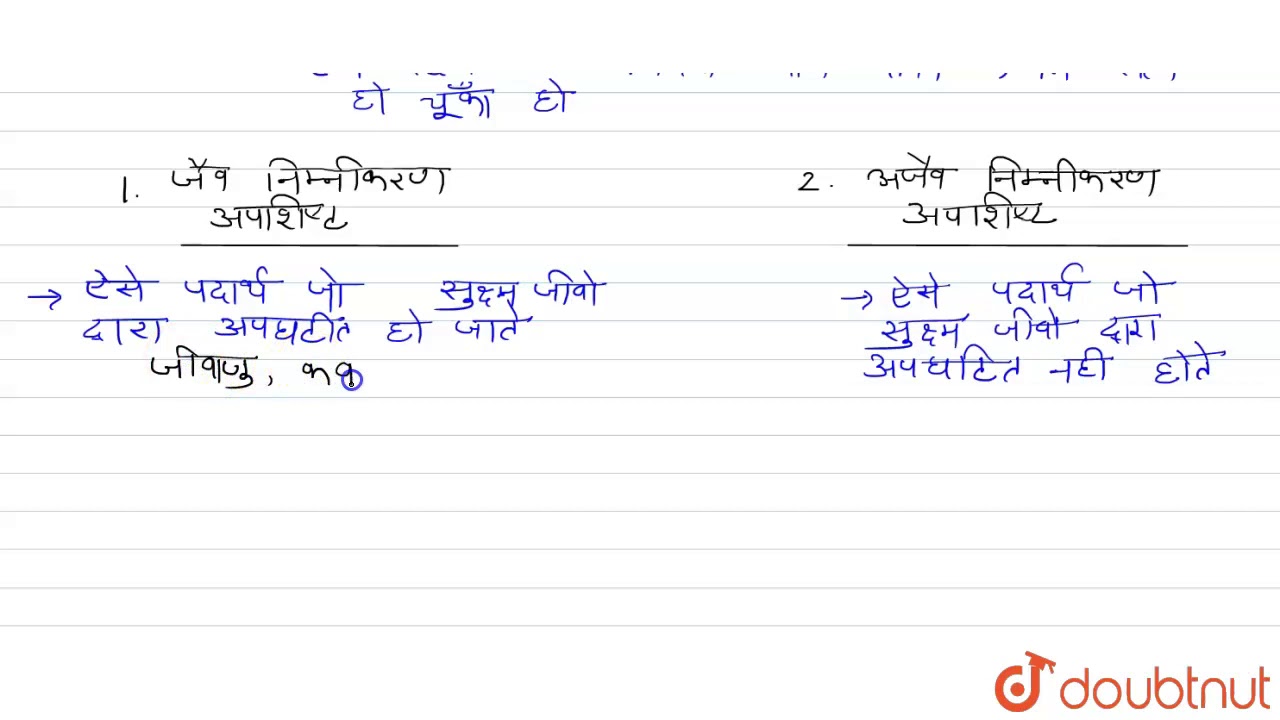 हो चूँका हो
1. जैव निम्नीकरण
अपाशिष्ट
→ ऐसे पदार्थ जो सुक्ष्म जीवो
द्वारा अपघटीत हो जाते
जीवाणु, कव
2. अजैव निम्नीकरण
अपाशिष्ट
→ ऐसे पदार्थ जो
सुक्ष्म जीवो द्वारा
अपघटित नही होते
doubtnut